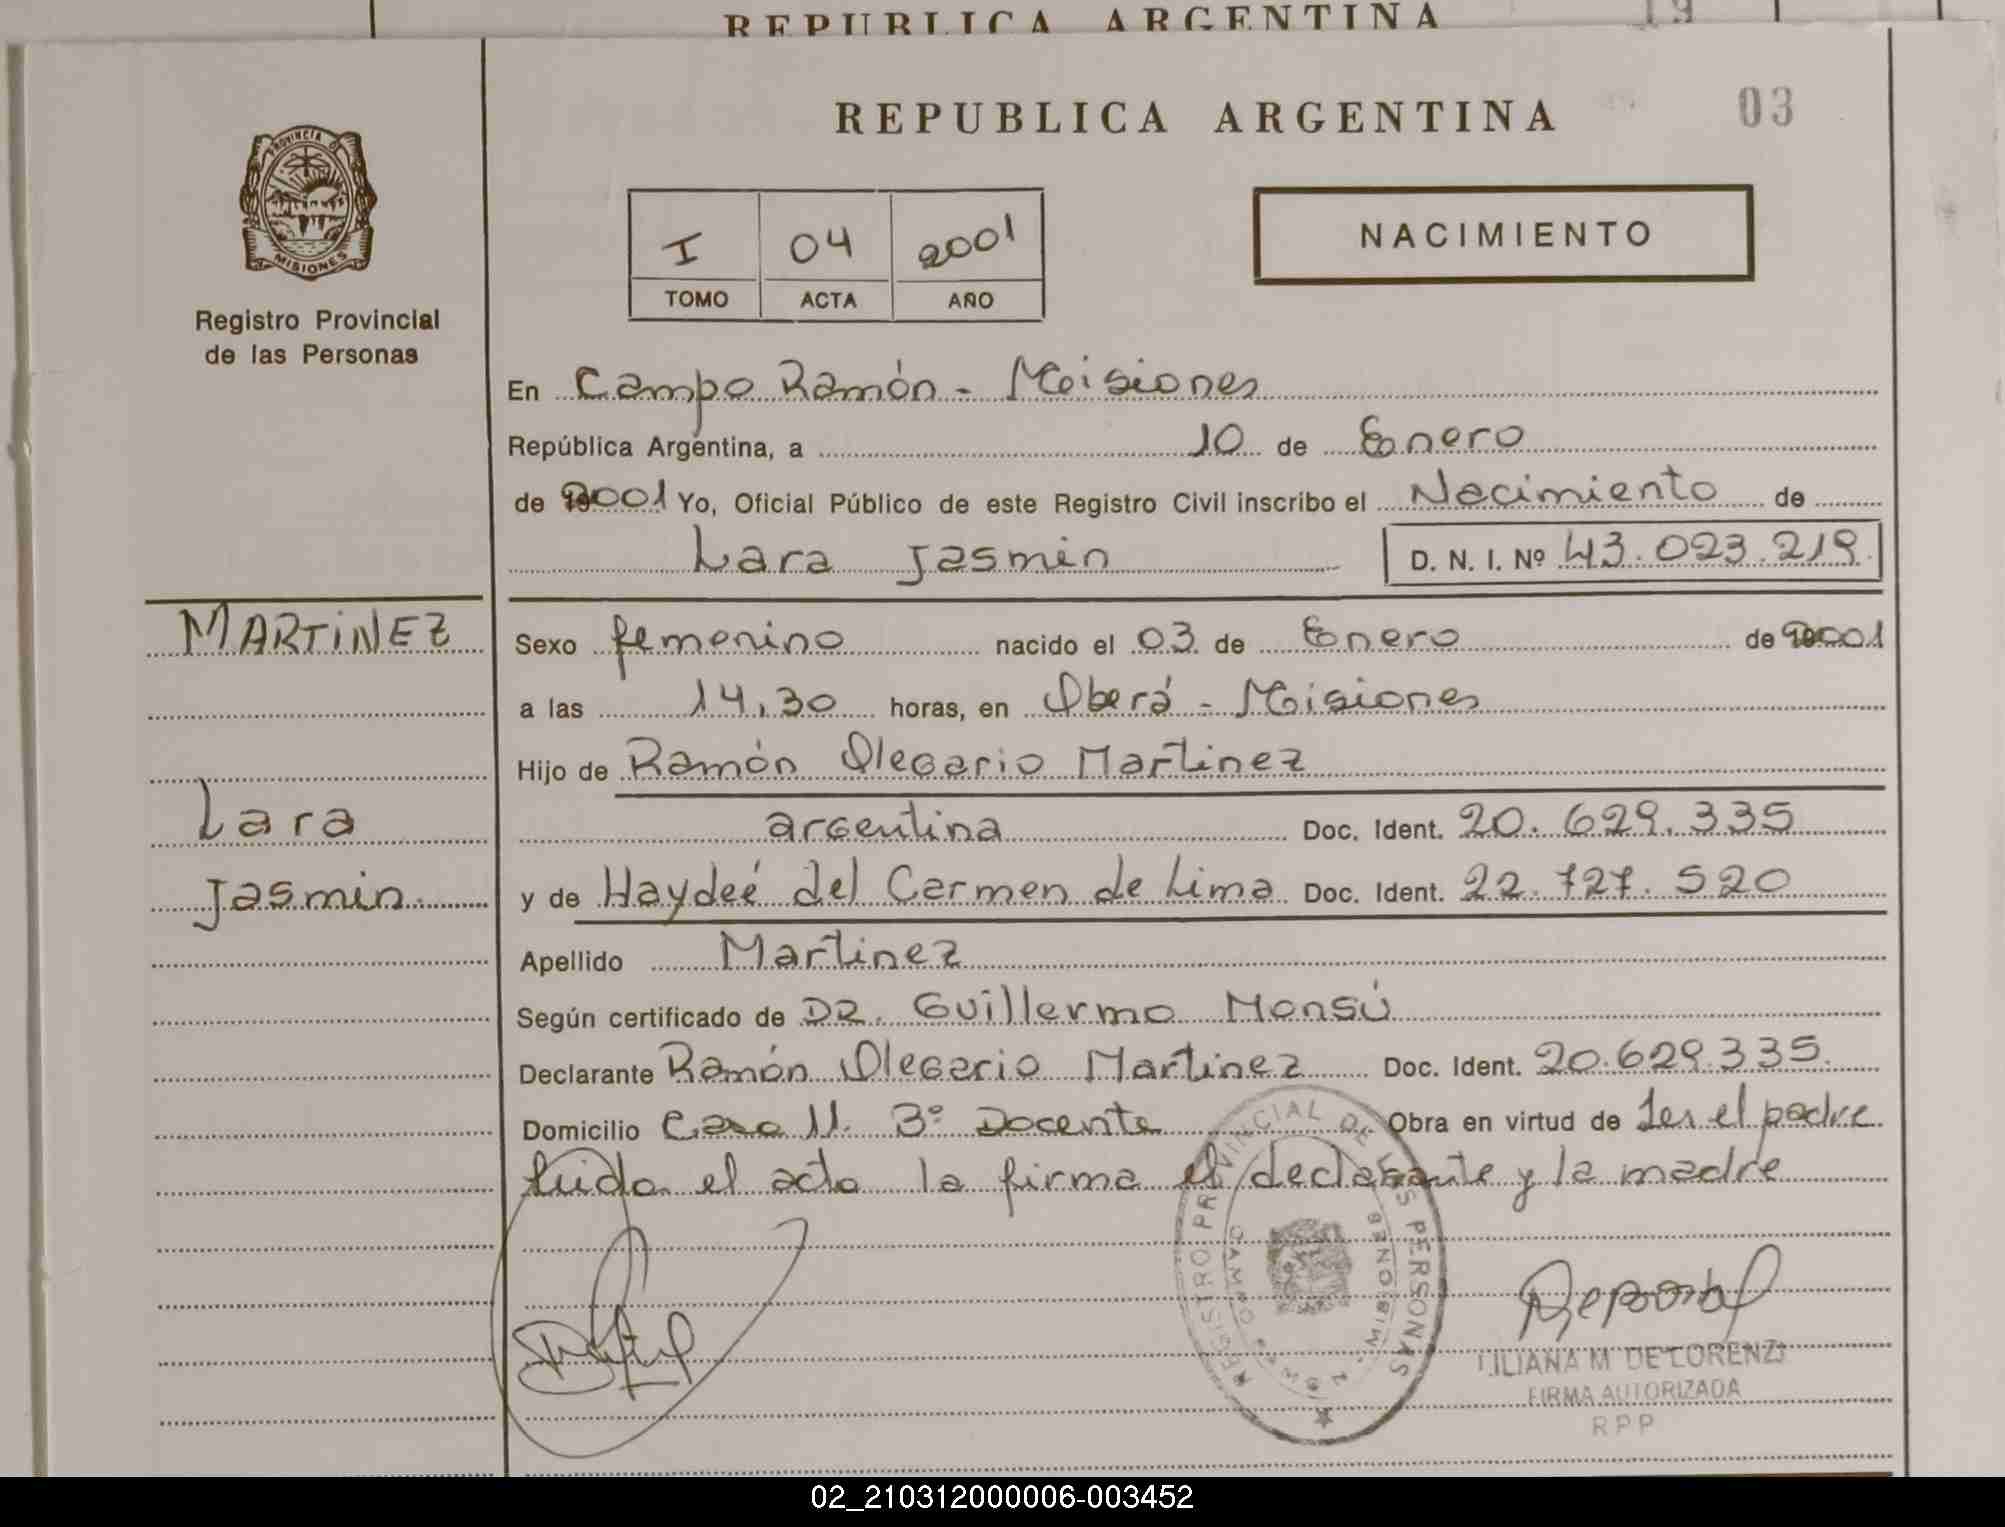 REPUBLICA ARGENTINA
19
REPUBLICA ARGENTINA
03
PROVINCIA
MISIONES
Registro Provincial
de las Personas
I 04 2001
TOMO ACTA AÑO
NACIMIENTO
En Campo Ramón - Misiones
República Argentina, a 10 de Enero
de 2001 Yo, Oficial Público de este Registro Civil inscribo el Nacimiento de
Lara Jasmin D. N. I. Nº 43.023.219
MARTINEZ
Lara
Jasmin.
Sexo femenino nacido el 03 de Enero de 2001
a las 14,30 horas, en Oberá - Misiones
Hijo de Ramón Olegario Martinez
argentina Doc. Ident. 20.629.335
y de Haydeé del Carmen de Lima Doc. Ident. 22.727.520
Apellido Martinez
Según certificado de DR. Guillermo Monsú
Declarante Ramón Olegario Martinez Doc. Ident. 20.629.335.
Domicilio Casa 11. 3º Docente Obra en virtud de ser el padre
leida el acta la firma el declarante y la madre
REGISTRO PROVINCIAL DE LAS PERSONAS
CAMPO MISIONES
LILIANA M DE LORENZI
FIRMA AUTORIZADA
RPP
02_210312000006-003452